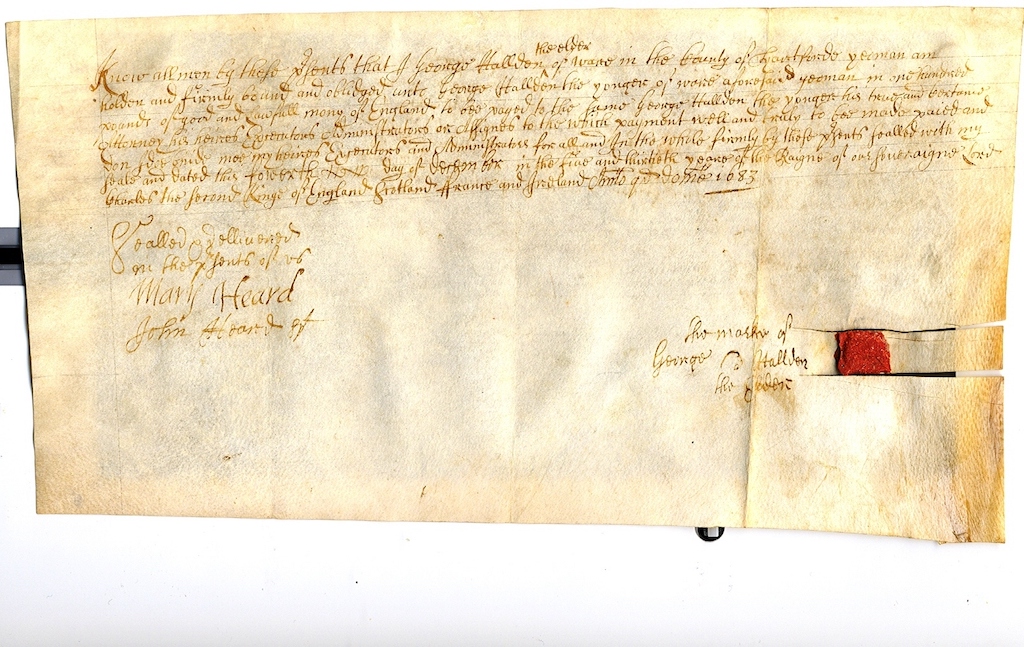 the elder
Know all men by these psents that I George Hallden of ware in the County of Hartforde yeoman am
holden and firmly bound and obliged unto George Hallden the yonger of ware aforesaid yeoman in one hundred
pounds of good and lawfull mony of England to bee payd to the same George Hallden the yonger his true and certaine
Attorney his heires Executors Administrators or Assignes to the which payment well and truly to bee made paied and
don I doe binde mee my heires Executors and Administrators for all and In the whole firmly by these psents sealled with my
seale and dated this fowerth day of December in the five and thirtieth yeare of the Raigne of our soveraigne Lord
Charles the second Kinge of England Scotland ffrance and Ireland Anno qd dome 1683
Sealled & Dellivered
in the psents of us
Mark Heard
John Heard
the marke of
George Hallden
the Elder